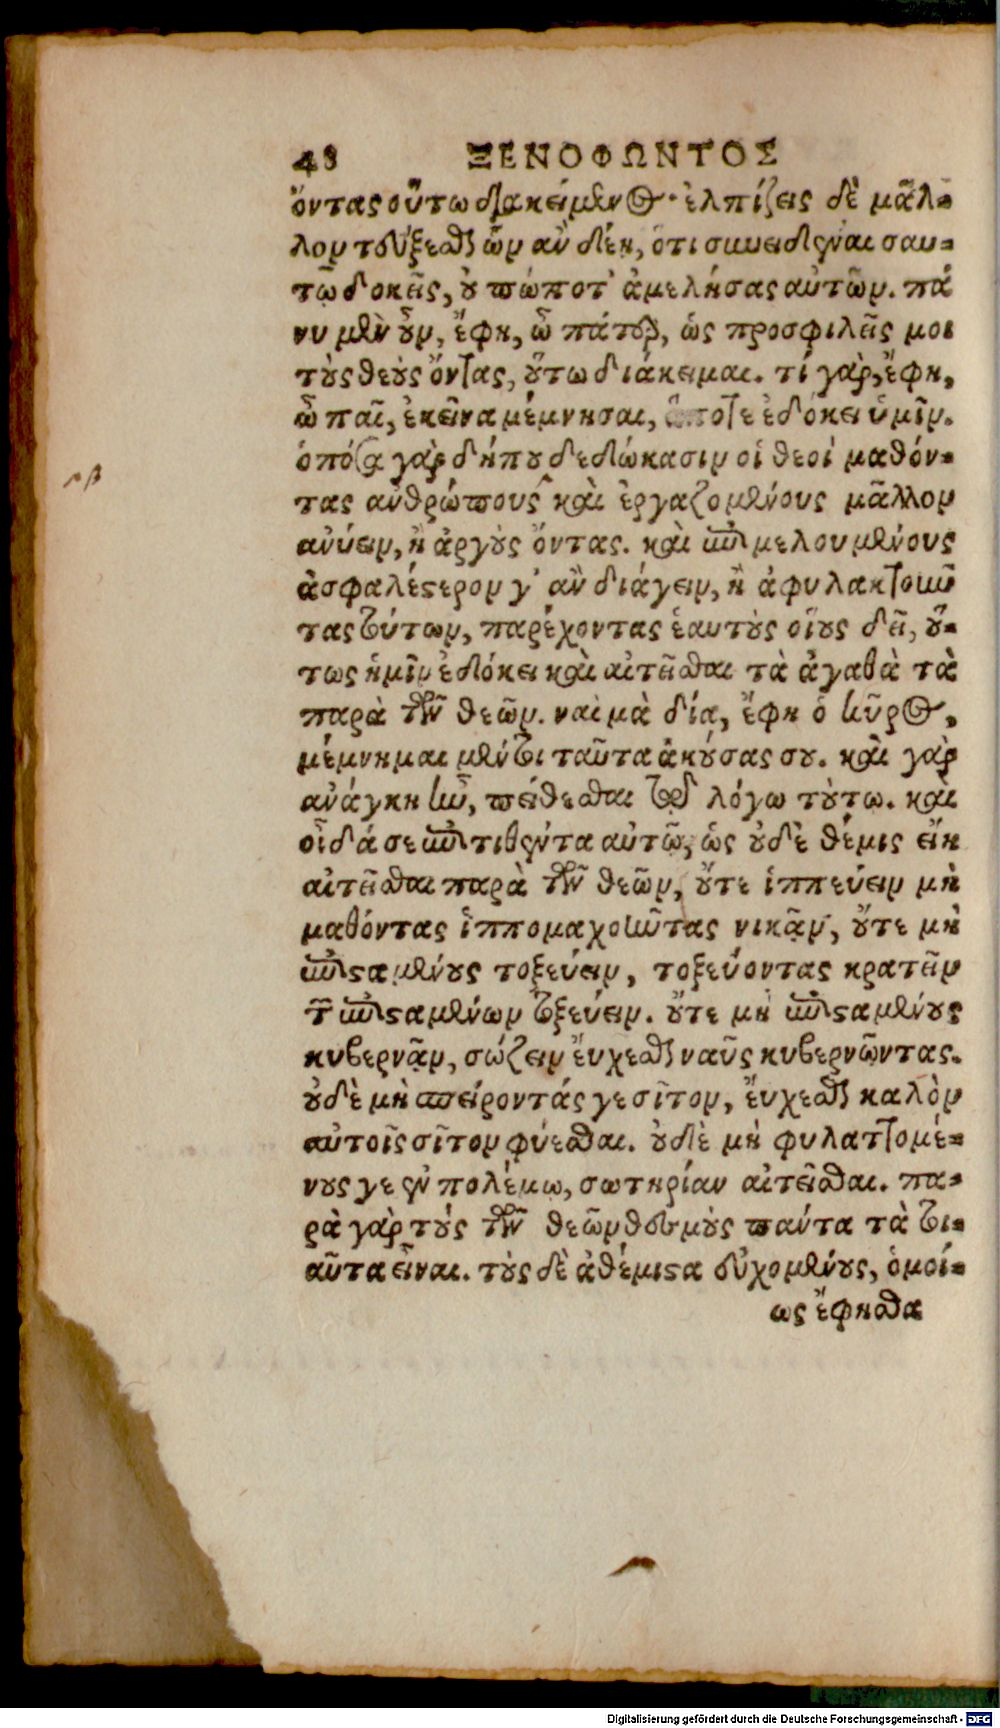 48 ΞΕΝΟΦΩΝΤΟΣ
ὄντας οὕτω διακείμενος· ἐλπίζεις δὲ μᾶλ-
λον τεύξεσθαι ὧν ἂν δέῃ, ὅτι συνειδέναι σαυ-
τῷ δοκεῖς, οὐ πώποτ' ἀμελήσας αὐτῶν. πά
νυ μὲν οὖν, ἔφη, ὦ πάτερ, ὡς προσφιλεῖς μοι
τοὺς θεοὺς ὄντας, οὕτω διάκειμαι. τί γὰρ, ἔφη,
ὦ παῖ, ἐκεῖνα μέμνησαι, ἅ ποτε ἐδόκει ὑμῖν.
ὁπόσα γὰρ δήπου δεδώκασιν οἱ θεοὶ μαθόν-
τας ἀνθρώπους καὶ ἐργαζομένους μᾶλλον
ἀνύειν, ἢ ἀργοὺς ὄντας. καὶ ἐπιμελουμένους
ἀσφαλέστερον γ' ἂν διάγειν, ἢ ἀφυλακτοῦν
τας τούτων, παρέχοντας ἑαυτοὺς οἵους δεῖ, οὕ-
τως ἡμῖν ἐδόκει καὶ αἰτεῖσθαι τὰ ἀγαθὰ τὰ
παρὰ τῶν θεῶν. ναὶ μὰ δία, ἔφη ὁ κῦρος,
μέμνημαι μέντοι ταῦτα ἀκούσας σου. καὶ γὰρ
ἀνάγκη ἦν, πείθεσθαι τῷ λόγῳ τούτῳ. καὶ
οἶδά σε ἐπιτιθέντα αὐτῷ, ὡς οὐδὲ θέμις εἴη
αἰτεῖσθαι παρὰ τῶν θεῶν, οὔτε ἱππεύειν μὴ
μαθόντας ἱππομαχοῦντας νικᾷν, οὔτε μὴ
ἐπισταμένους τοξεύειν, τοξεύοντας κρατεῖν
τῶν ἐπισταμένων τοξεύειν. οὔτε μὴ ἐπισταμένους
κυβερνᾷν, σώζειν εὔχεσθαι ναῦς κυβερνῶντας.
οὐδὲ μὴ σπείροντάς γε σῖτον, εὔχεσθαι καλὸν
αὐτοῖς σῖτον φύεσθαι. οὐδὲ μὴ φυλαττομέ-
νους γε ἐν πολέμῳ, σωτηρίαν αἰτεῖσθαι. πα-
ρὰ γὰρ τοὺς τῶν θεῶν θεσμοὺς πάντα τὰ τοι-
αῦτα εἶναι. τοὺς δὲ ἀθέμιστα εὐχομένους, ὁμοί-
ως ἔφησθα
Digitalisierung gefördert durch die Deutsche Forschungsgemeinschaft - DFG